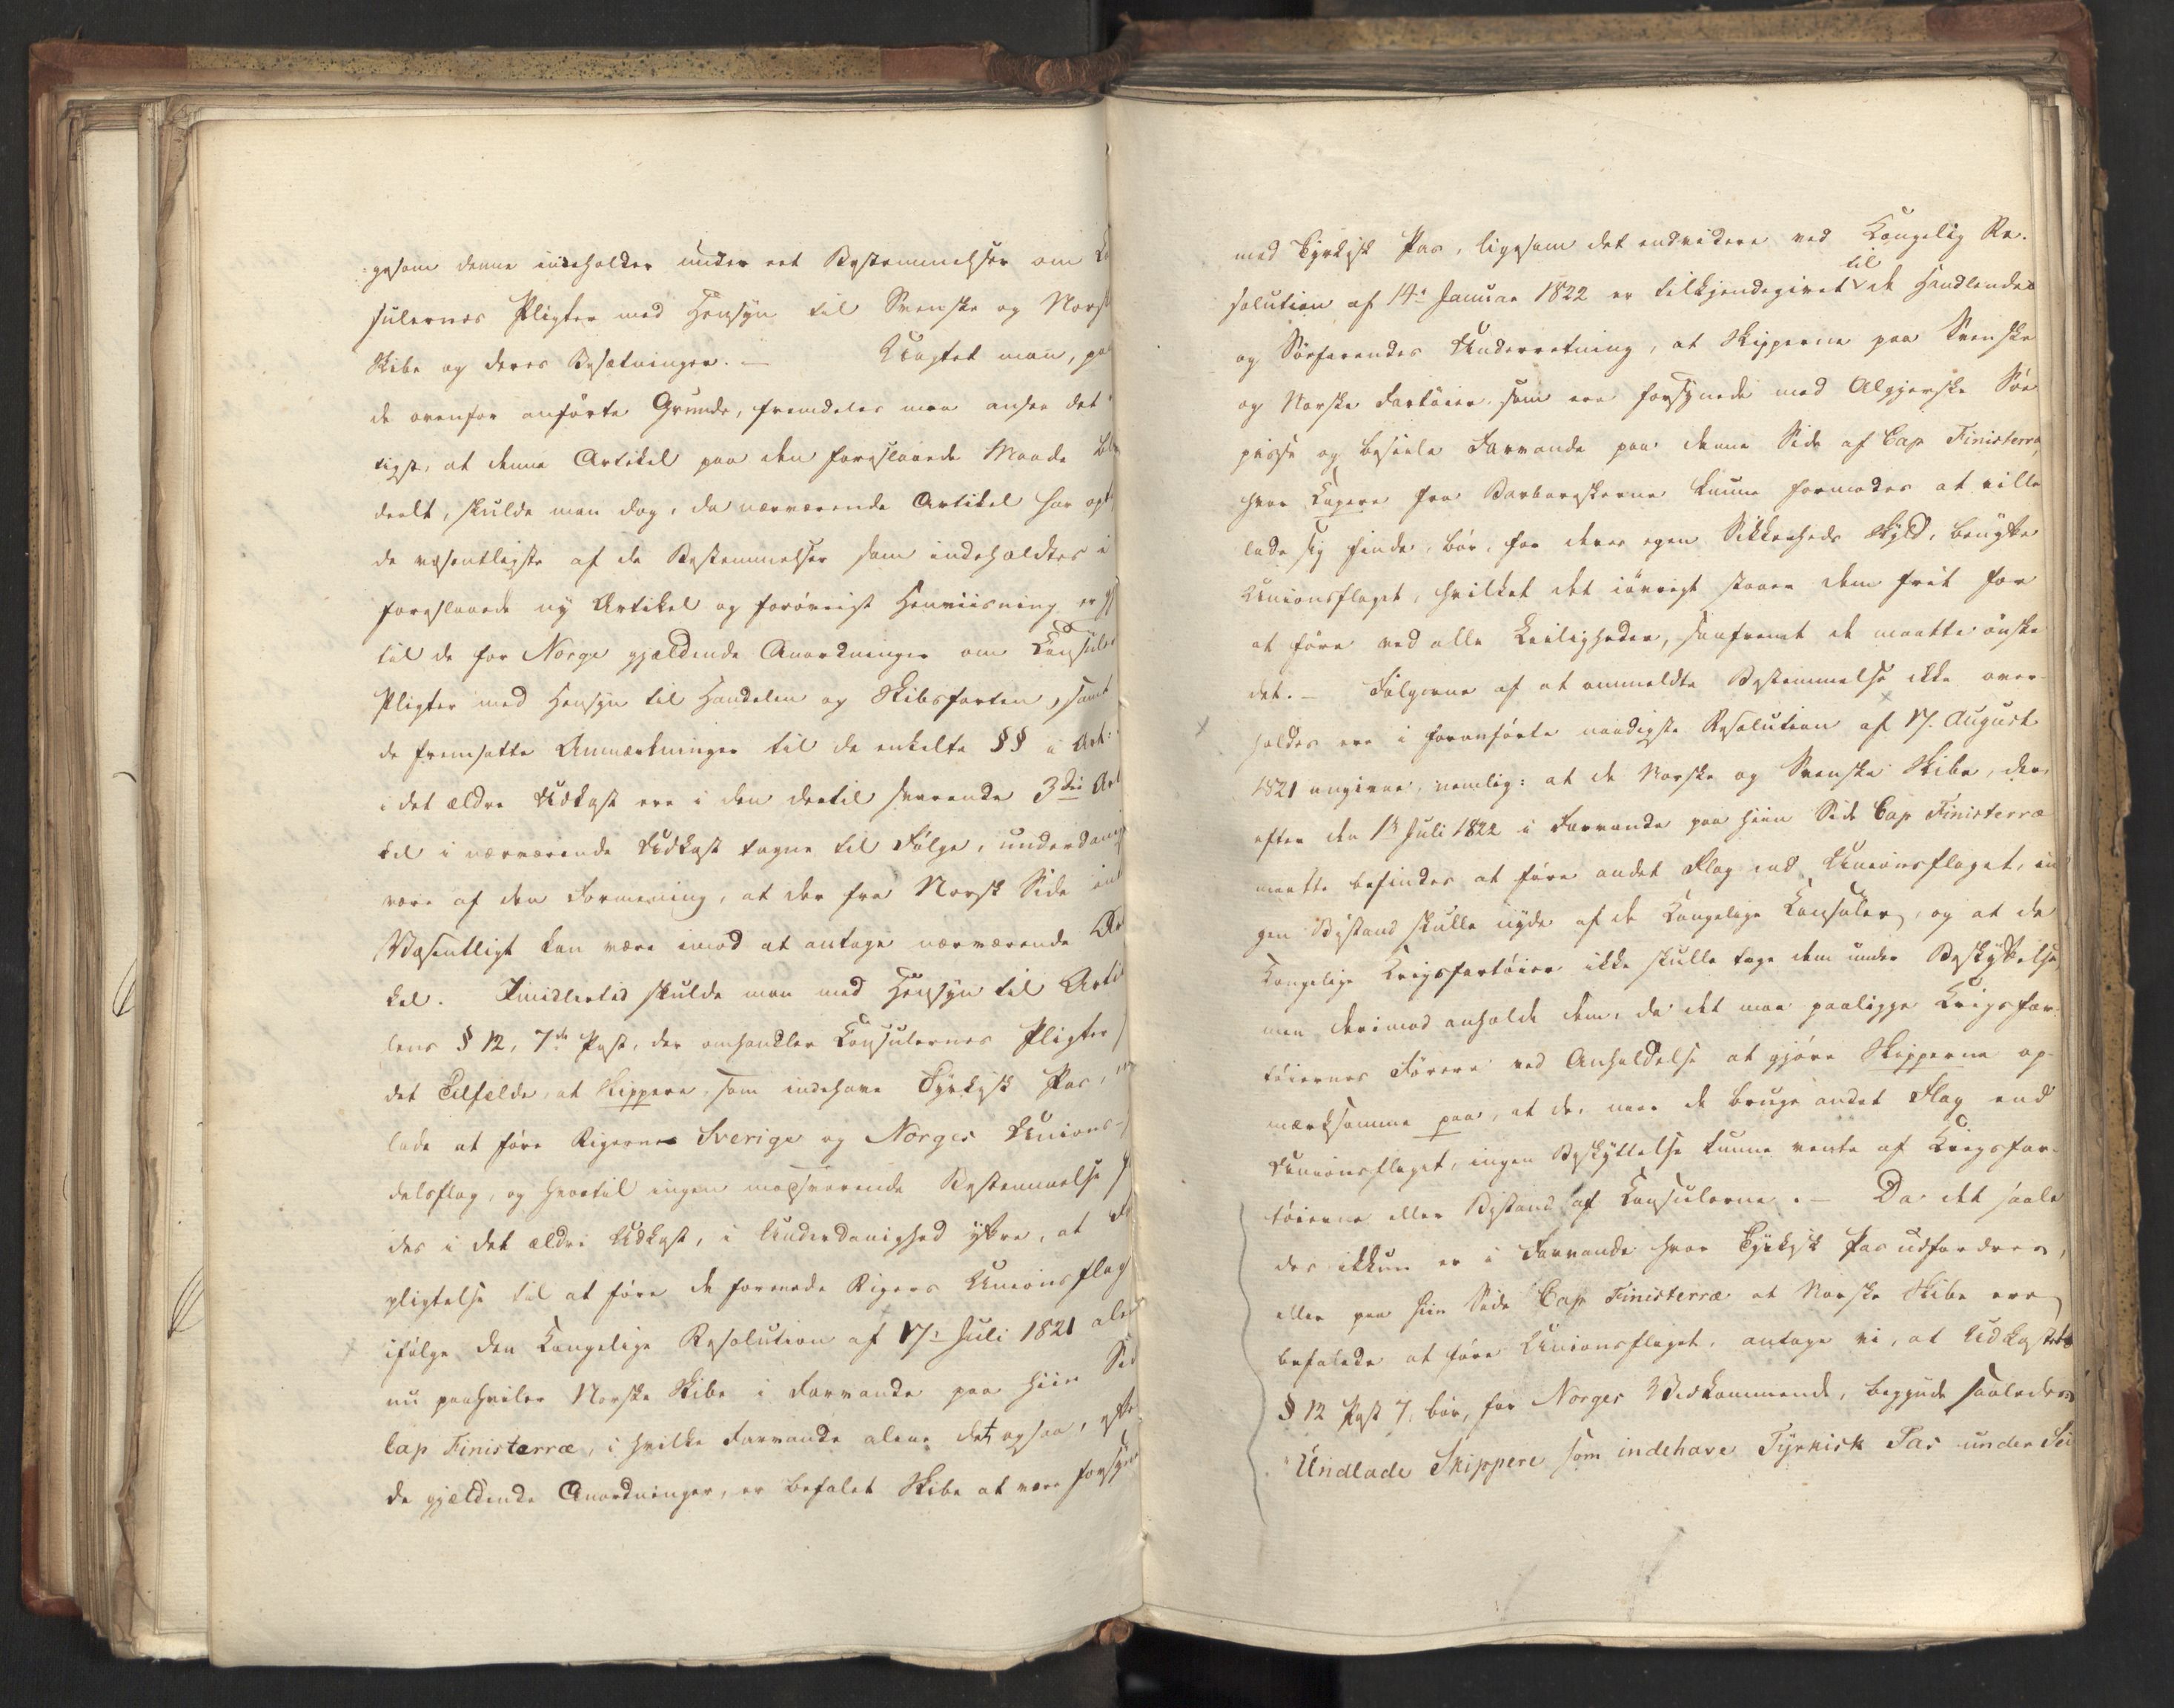 gesom denne indeholder under eet Bestemmelser om
sulernes Pligter med Hensyn til Svenske og Norsk
Skibe og deres Besætninger. — Uagtet man, paa
de ovenfor anförte Grunde, fremdeles maa ansee det
rigst, at denne Artikel paa den foreslaaede Maade
deelt, skulde man dog, da nærværende Artikel har opt
de væsentligste af de Bestemmelser som indeholdtes i
foreslaaede ny Artikel og forövrigt Henviisning er
til de for Norge gjældende Anordninger om Consuler
Pligter med Hensyn til Handelen og Skibsfarten, samt
de fremsatte Anmærkninger til de enkelte §§ i Art:
i det ældre Udkast ere i den dertil svarende 3die Art
kel i nærværende Udkast tagne til Fölge, underdanig
være af den Formening, at der fra Norsk Side int
Væsentligt kan være imod at antage nærværende Ar
kel. Imidlertid skulde man med Hensyn til Arti
lens § 12, 7de Post, der omhandler Consulernes Pligter
det Tilfælde, at Skippere, som indehave Tyrkisk Pas,
lade at före Rigernes Sverige og Norges Unions-
delsflag, og hvortil ingen modsvarende Bestemmelse
des i det ældre Udkast, i Underdanighed yttre, at
pligtelse til at före de forenede Rigers Unionsflag
ifölge den Kongelige Resolution af 17de Juli 1821 ale
nu paahviler Norske Skibe i Farvande paa hiin Sid
Cap Finisterræ, i hvilke Farvande alene det ogsaa, efter
de gjældende Anordninger, er befalet Skibe at være forsyn
med Tyrkisk Pas, ligesom det endvidere ved Kongelig Re-
solution af 14de Januar 1822 er tilkjendegivet til de Handlendes
og Söefarendes Underretning, at Skipperne paa Svenske
og Norske Fartöier, som ere forsynede med Algierske Söe
passe og beseile Farvande paa denne Side af Cap Finisterra,
hvor Capere fra Barbareskerne kunne formodes at ville
lade sig finde, bör, for deres egen Sikkerheds Skyld, benytte
Unionsflaget, hvilket det iövrigt staaer dem frit for
at före ved alle Leiligheder, saafremt de maatte önske
det. — Fölgerne af at ommeldte Bestemmelse ikke over-
holdes ere i foranförte naadigste Resolution af 17. August
1821 angivne, nemlig: at de Norske og Svenske Skibe, der,
efter den 1ste Juli 1822 i Farvande paa hiin Side Cap Finisterræ
maatte befindes at före andet Flag end Unionsflaget, in
gen Bistand skulle nyde af de Kongelige Consuler, og at de
Kongelige Krigsfartöier ikke skulle tage dem under Beskyttelse,
men derimod anholde dem, da det maa paaligge Krigsfar-
töiernes Förere ved Anholdelse at gjöre Skipperne op-
mærksomme paa, at de, naar de bruge andet Flag end
Unionsflaget, ingen Beskyttelse kunne vente af Krigsfar-
töierne eller Bistand af Consulerne. — Da det saale
des ikkun er i Farvande hvor Tyrkisk Pas udfordres,
eller paa hiin Side Cap Finisterræ at Norske Skibe ere
befalede at före Unionsflaget, antage vi, at Udkastets
§ 12 Post 7, bör, for Norges Vedkommende, begynde saaledes:
"Undlade Skippere som indehave Tyrkisk Pas under Sei